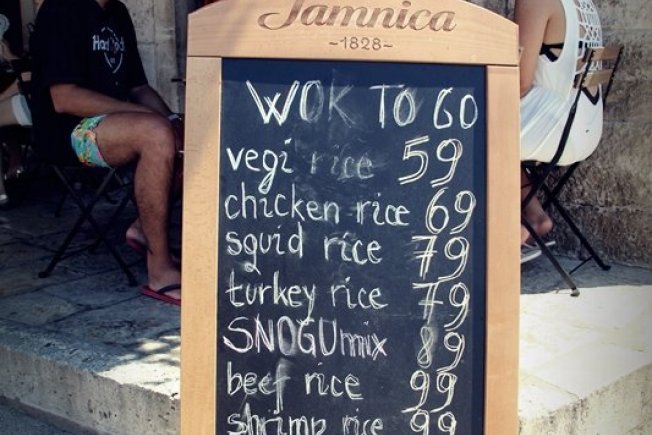 Jamnica
~1828~
WOK TO GO
vegi rice 59
chicken rice 69
squid rice 79
turkey rice 79
SNOGUmix 89
beef rice 99
shrimp rice 99